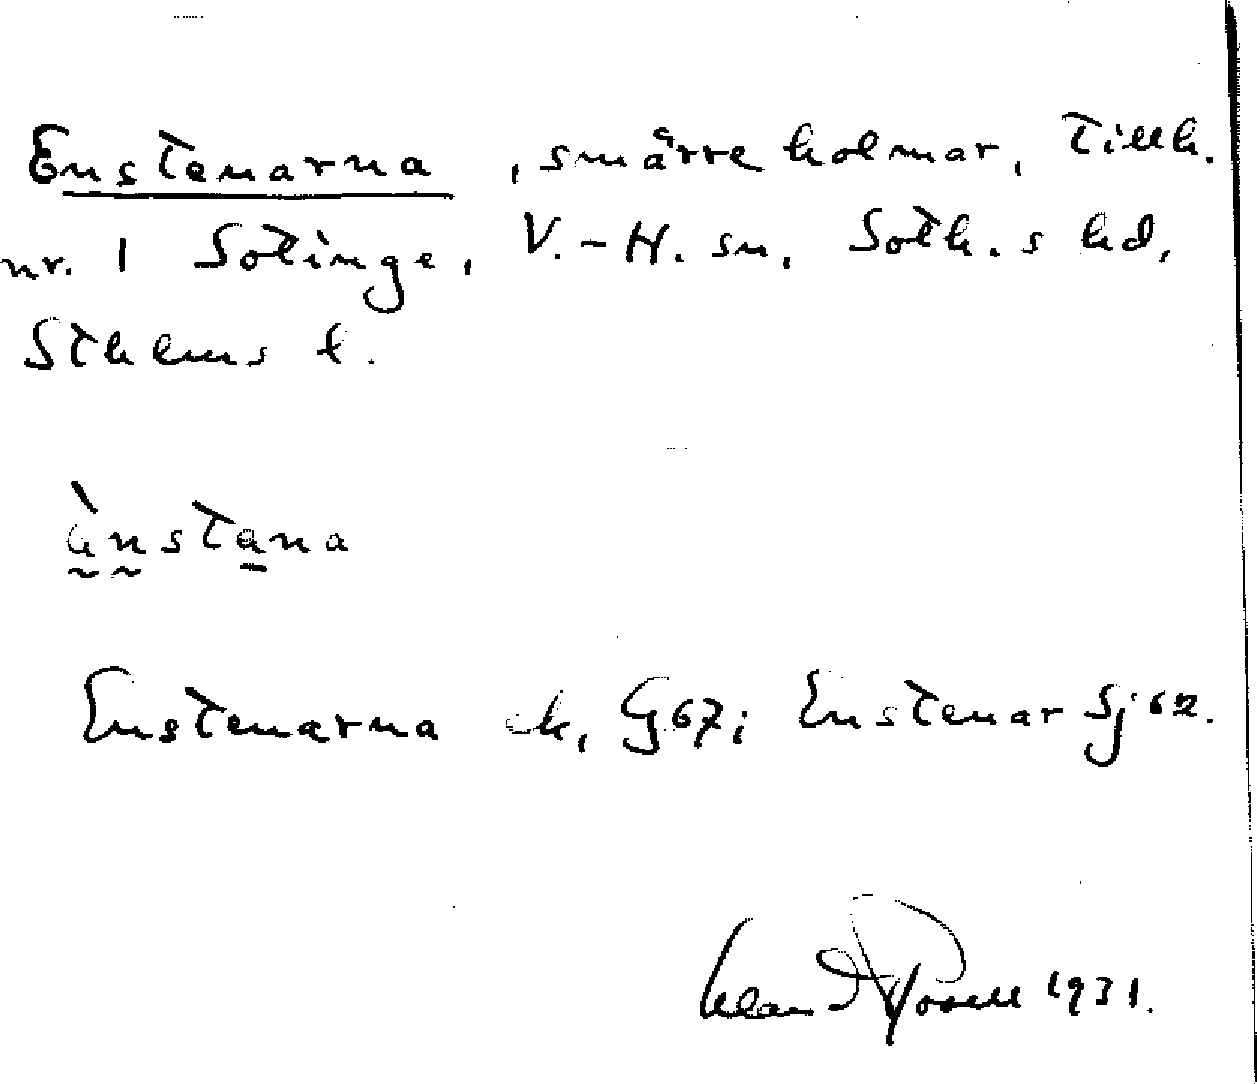 Enstenarna, smärre holmar, tillh.
nr. 1 Solinge, V.-H. sn, Soth.s hd,
Sthlms l.
ènstana
Enstenarna ek, G67; Enstenar Sj62.
1931.